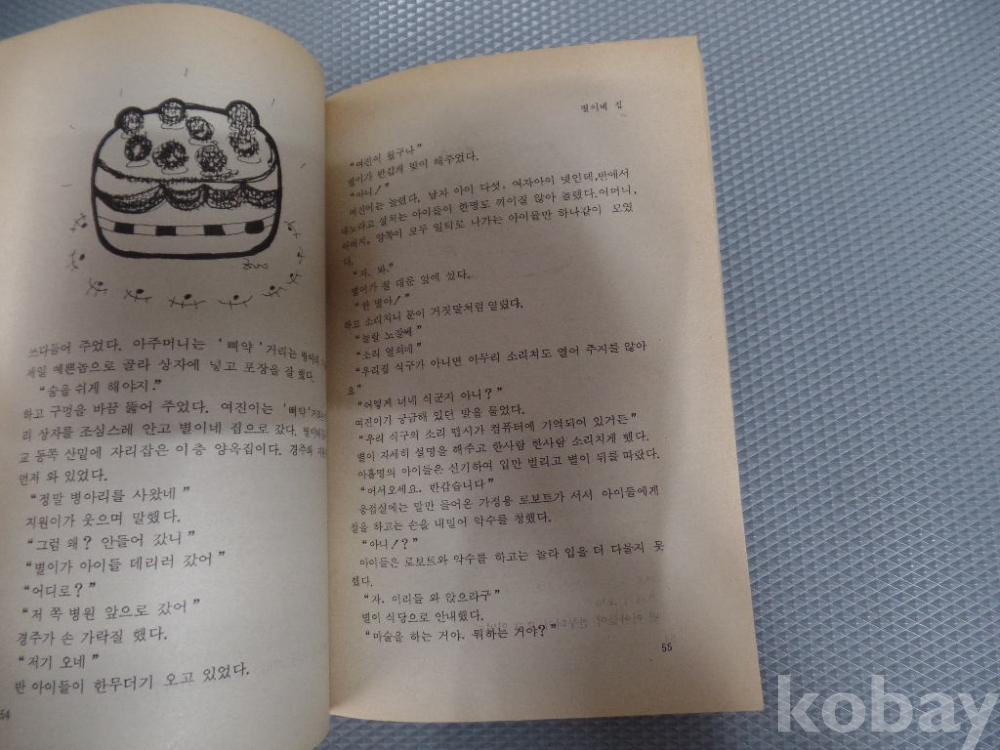 쓰다듬어 주었다. 아주머니는 '삐약' 거리는 병아리
제일 예쁜놈으로 골라 상자에 넣고 포장을 잘 했다.
"숨을 쉬게 해야지."
하고 구멍을 바꿈 뚫어 주었다. 여진이는 '삐약' 거리
리 상자를 조심스레 안고 별이네 집으로 갔다.
교 동쪽 산밑에 자리잡은 이층 양옥집이다. 경주와
먼저 와 있었다.
"정말 병아리를 사왔네"
지원이가 웃으며 말했다.
"그럼 왜? 안들어 갔니"
"별이가 아이들 데리러 갔어"
"어디로?"
"저 쪽 병원 앞으로 갔어"
경주가 손 가락질 했다.
"저기 오네"
반 아이들이 한무더기 오고 있었다.
54
별이네 집
"여진이 왔구나"
별이가 반갑게 맞이 해주었다.
"아니!"
여진이는 놀랐다. 남자 아이 다섯, 여자아이 넷인데, 반에서
내노라고 설치는 아이들이 한명도 끼이질 않아 놀랬다. 어머니,
아버지, 양쪽이 모두 일터로 나가는 아이들만 하나같이 모였
다.
"자. 봐."
별이가 철 대문 앞에 섰다.
"한 별아!"
하고 소리치니 문이 거짓말처럼 열렸다.
"놀랄 노짤쎄"
"소리 열쇠네"
"우리집 식구가 아니면 아무리 소리쳐도 열어 주지를 않아
요"
"어떻게 너네 식군지 아니?"
여진이가 궁금해 있던 말을 물었다.
"우리 식구의 소리 맵시가 컴퓨터에 기억되어 있거든"
별이 자세히 설명을 해주고 한사람 한사람 소리치게 했다.
아홉명의 아이들은 신기하여 입만 벌리고 별이 뒤를 따랐다.
"어서오세요. 반갑습니다"
응접실에는 말만 들어온 가정용 로보트가 서서 아이들에게
절을 하고는 손을 내밀어 악수를 청했다.
"아니!?"
아이들은 로보트와 악수를 하고는 놀라 입을 더 다물지 못
했다.
"자. 이리들 와 앉으라구"
별이 식당으로 안내했다.
"마술을 하는 거야. 뭐하는 거야?"
55
kobay